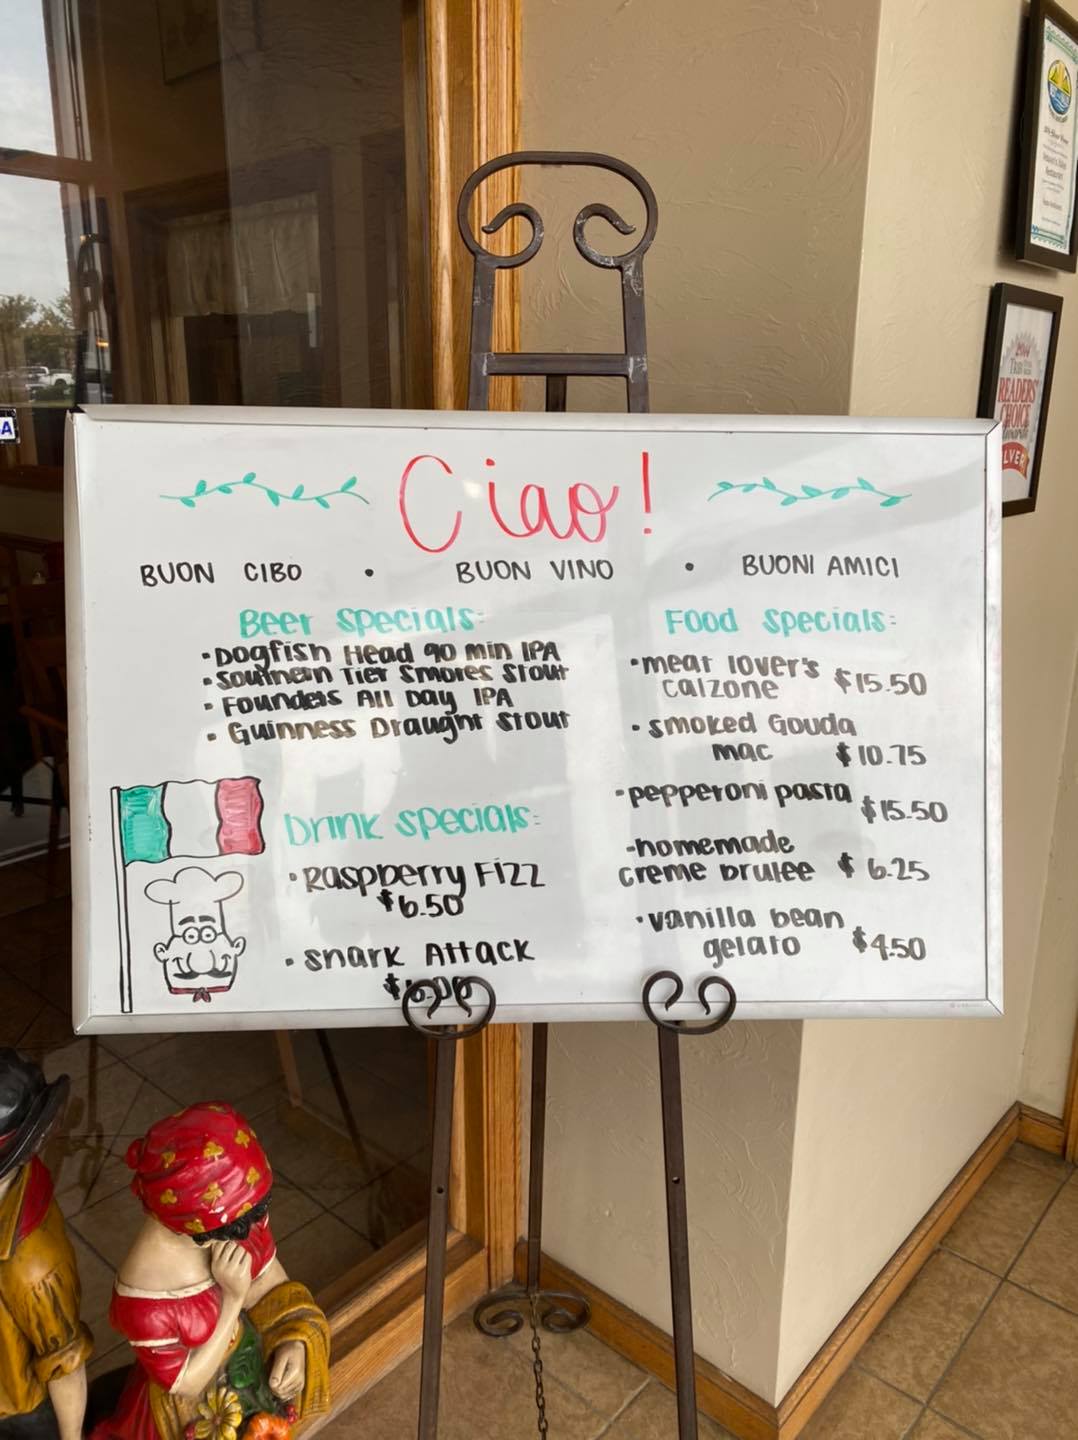 Ciao!
BUON CIBO • BUON VINO • BUONI AMICI
Beer Specials:
• Dogfish Head 90 min IPA
• Southern Tier Smores Stout
• Founders All Day IPA
• Guinness Draught Stout
Drink Specials:
• Raspberry Fizz
$6.50
• Shark Attack
Food Specials:
• meat lover's
calzone $15.50
• smoked Gouda
mac $10.75
• pepperoni pasta
$15.50
-homemade
creme brulee $6.25
• vanilla bean
gelato $4.50
READERS'
CHOICE